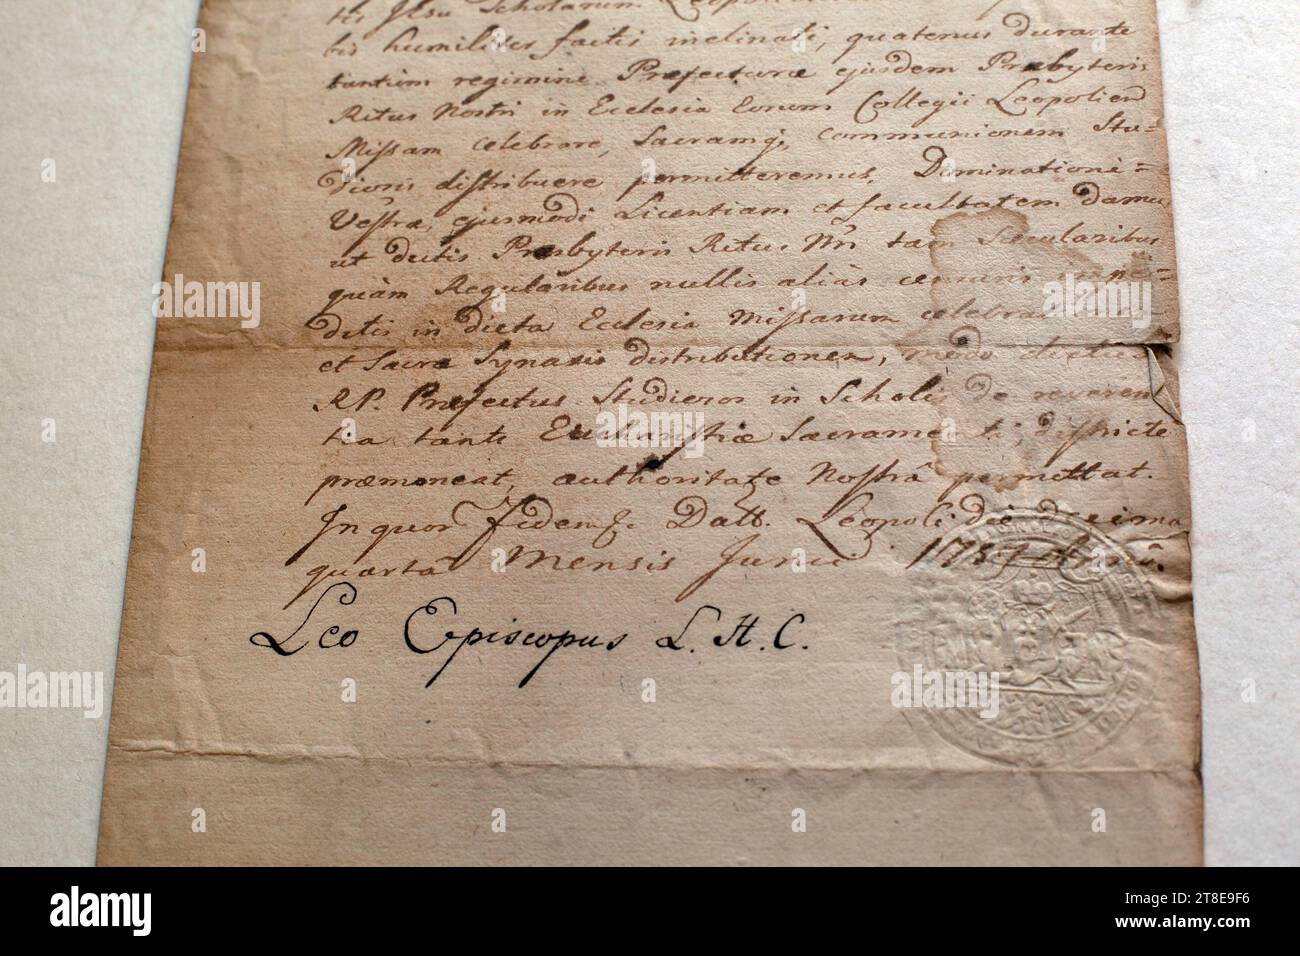 tis Jesu Scholarum
bis humiliter factis inclinati, quatenus durante
tantum regimine Præfecturæ ejusdem Presbyteris
Ritus Nostri in Ecclesia Eorum Collegii Leopolien
Missam celebrare, Sacramq, communionem Stu-
diosis distribuere permitteremus, Dominationi
Vestræ, ejusmodi Licentiam et facultatem damus
ut dictis Presbyteris Ritus Nri tam Sæcularibus
quàm Regularibus nullis alias censuris impe-
ditis in dicta Ecclesia Missarum celebrat
et Sacræ Synaxis distributionem, modo dictus
RP. Præfectus Studiosos in Scholis de reveren
tia tanti Eucharistiæ Sacramenti, districte
præmoneat, authoritate Nostrâ permittat.
In quor Fidem &. Datt. Leopoli die decima
quarta Mensis Junii 1757
Leo Episcopus L. H. C.
alamy
Image ID: 2T8E9F6
www.alamy.com